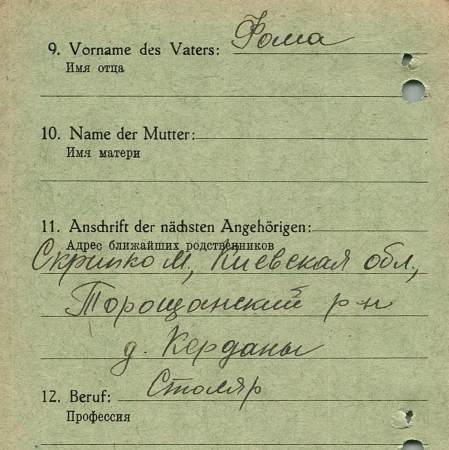 9. Vorname des Vaters: Фома
Имя отца
10. Name der Mutter:
Имя матери
11. Anschrift der nächsten Angehörigen:
Адрес ближайших родственников
Скрипко М, Киевская обл,
Торощанский р-н
д. Керданы
12. Beruf: Столяр
Профессия